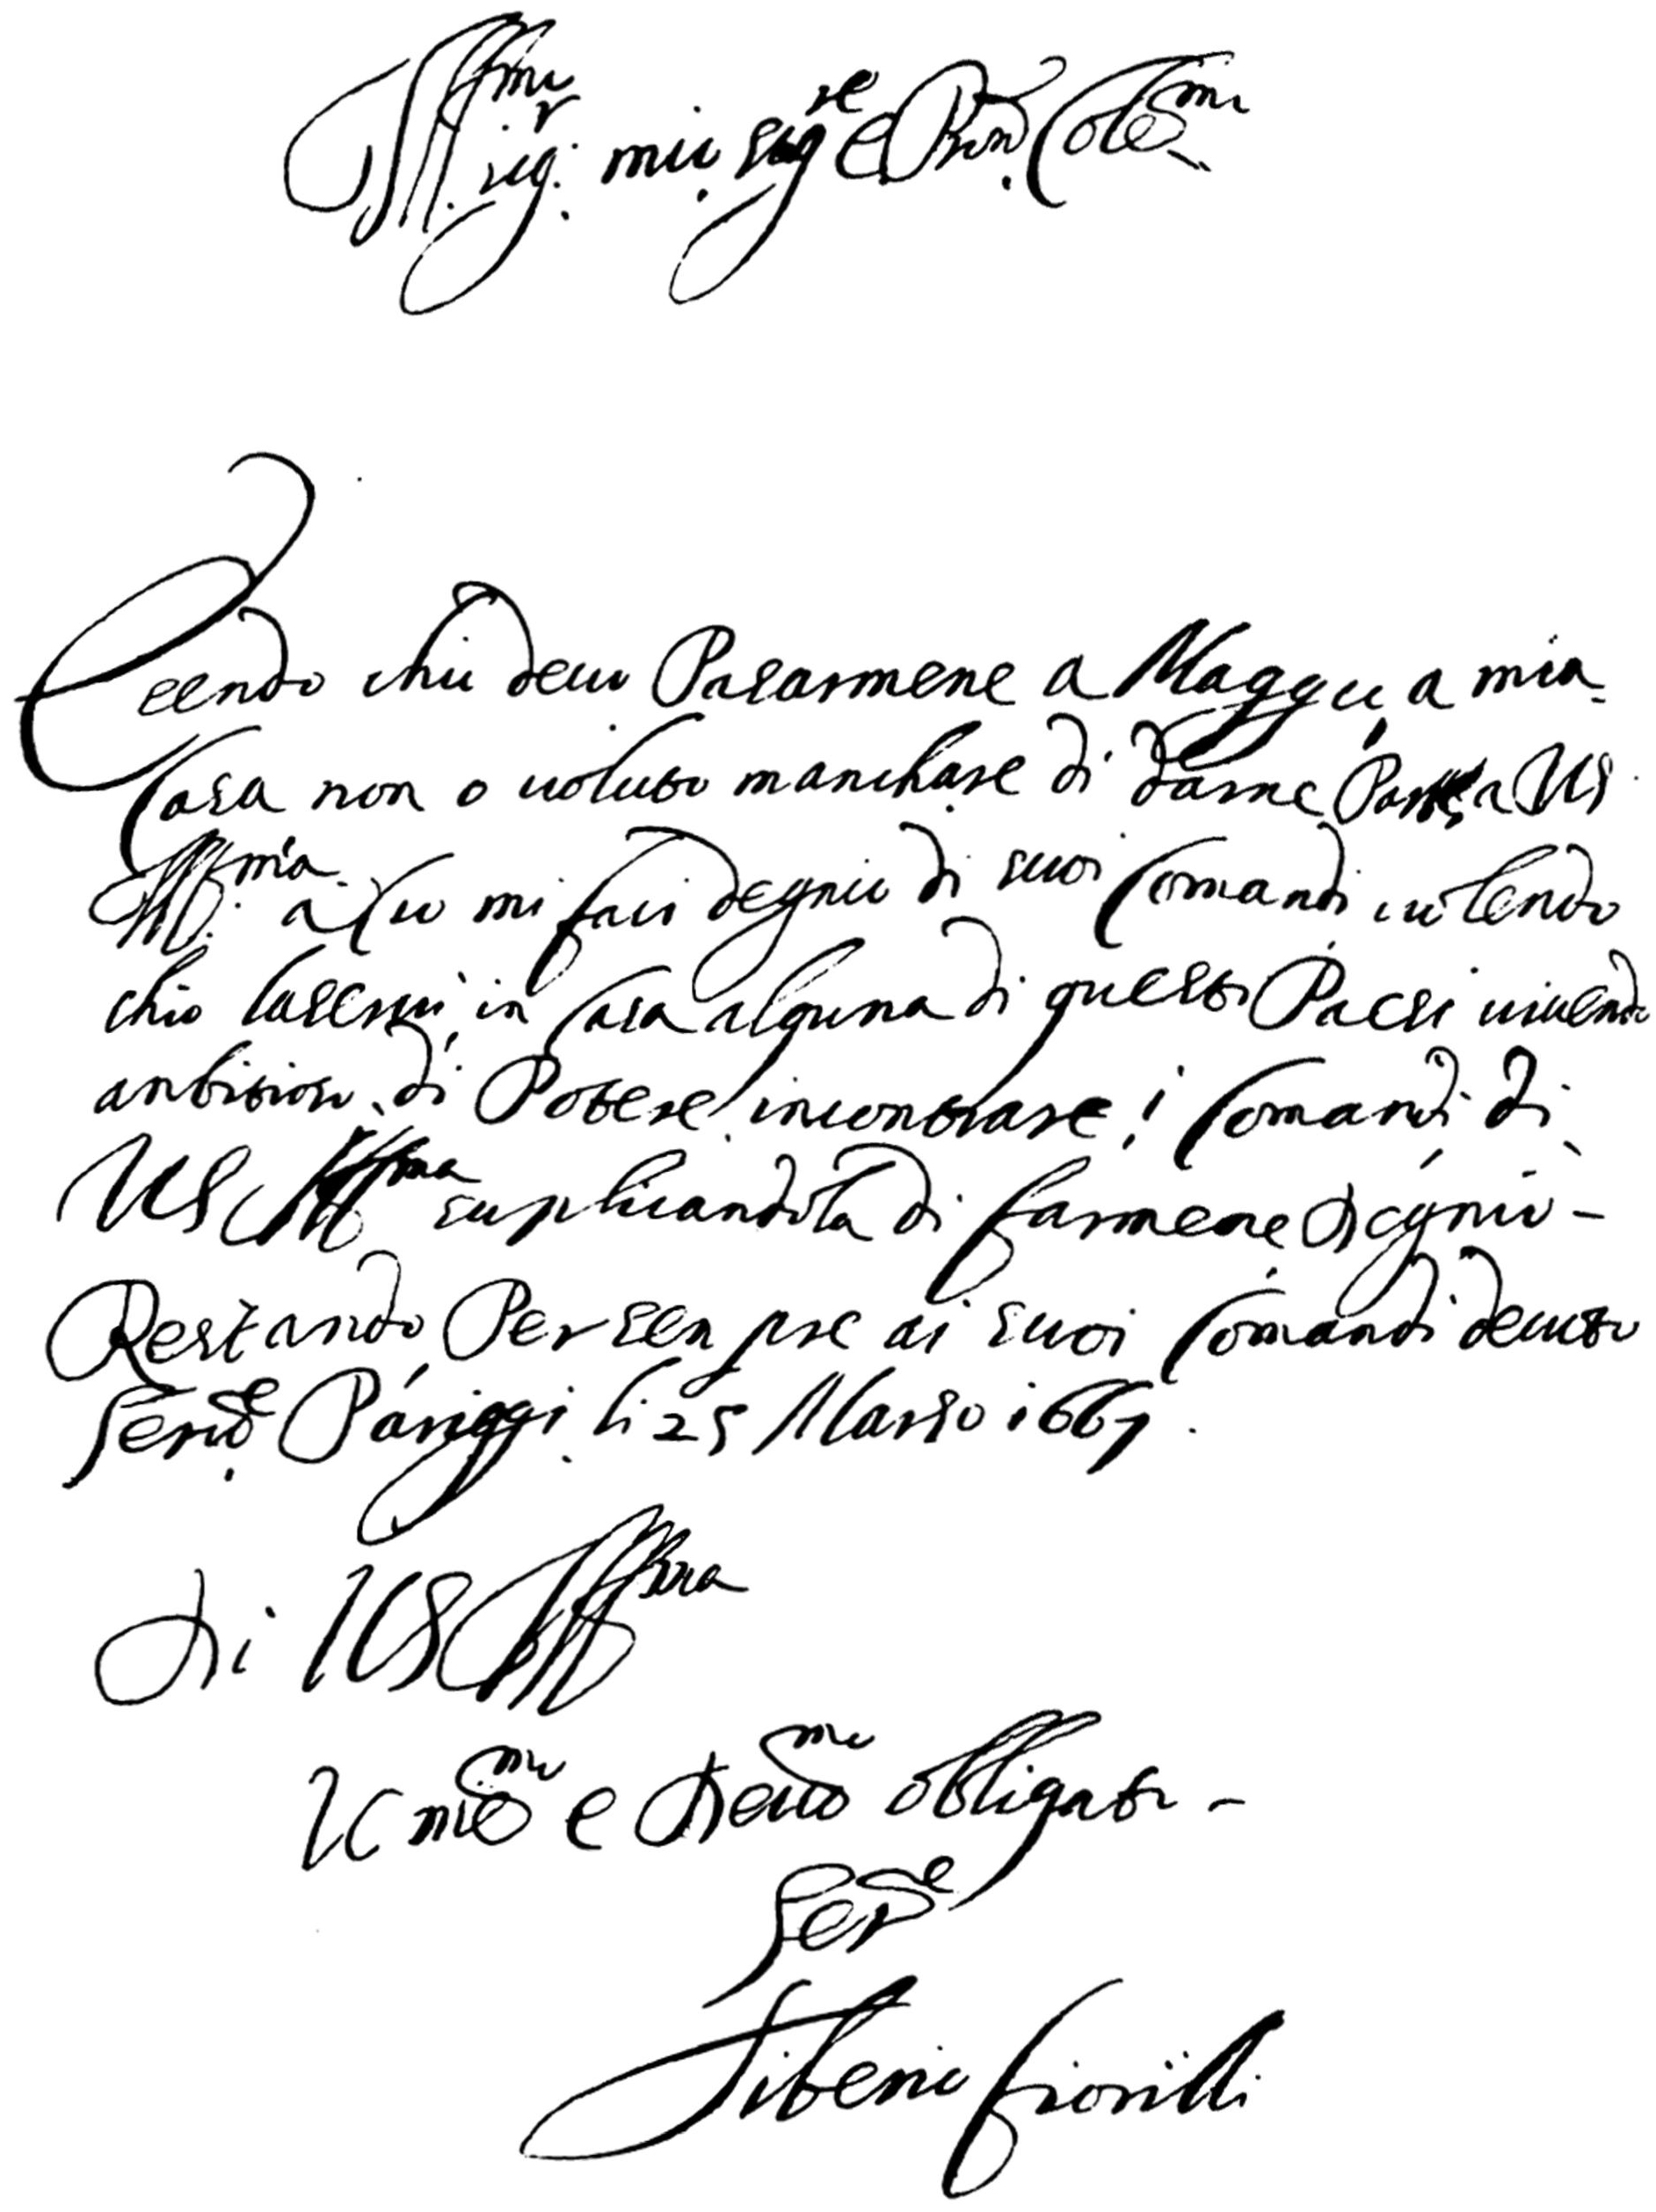 Ill.mo Sig.r mio Sig.re e Pron Col.mo
Eendo chio devo Pasarmene a Maggio a mia
Casa non o voluto manchare di darne Parte a VS
Ill.ma mi faci degnio di suoi Comandi volendo
chio laservi in Casa alguna di questi Paesi vivendo
anbitioso di Potere incontrare i Comandi di
VS Ill.ma suplicandola di farmene degnio -
Restando Per senpre ai suoi Comandi devuto
Servre Pariggi li 25 Marso 1667.
di VS Ill.ma
V mio e Devmo obligato -
Serre
Tiberio fiorilli